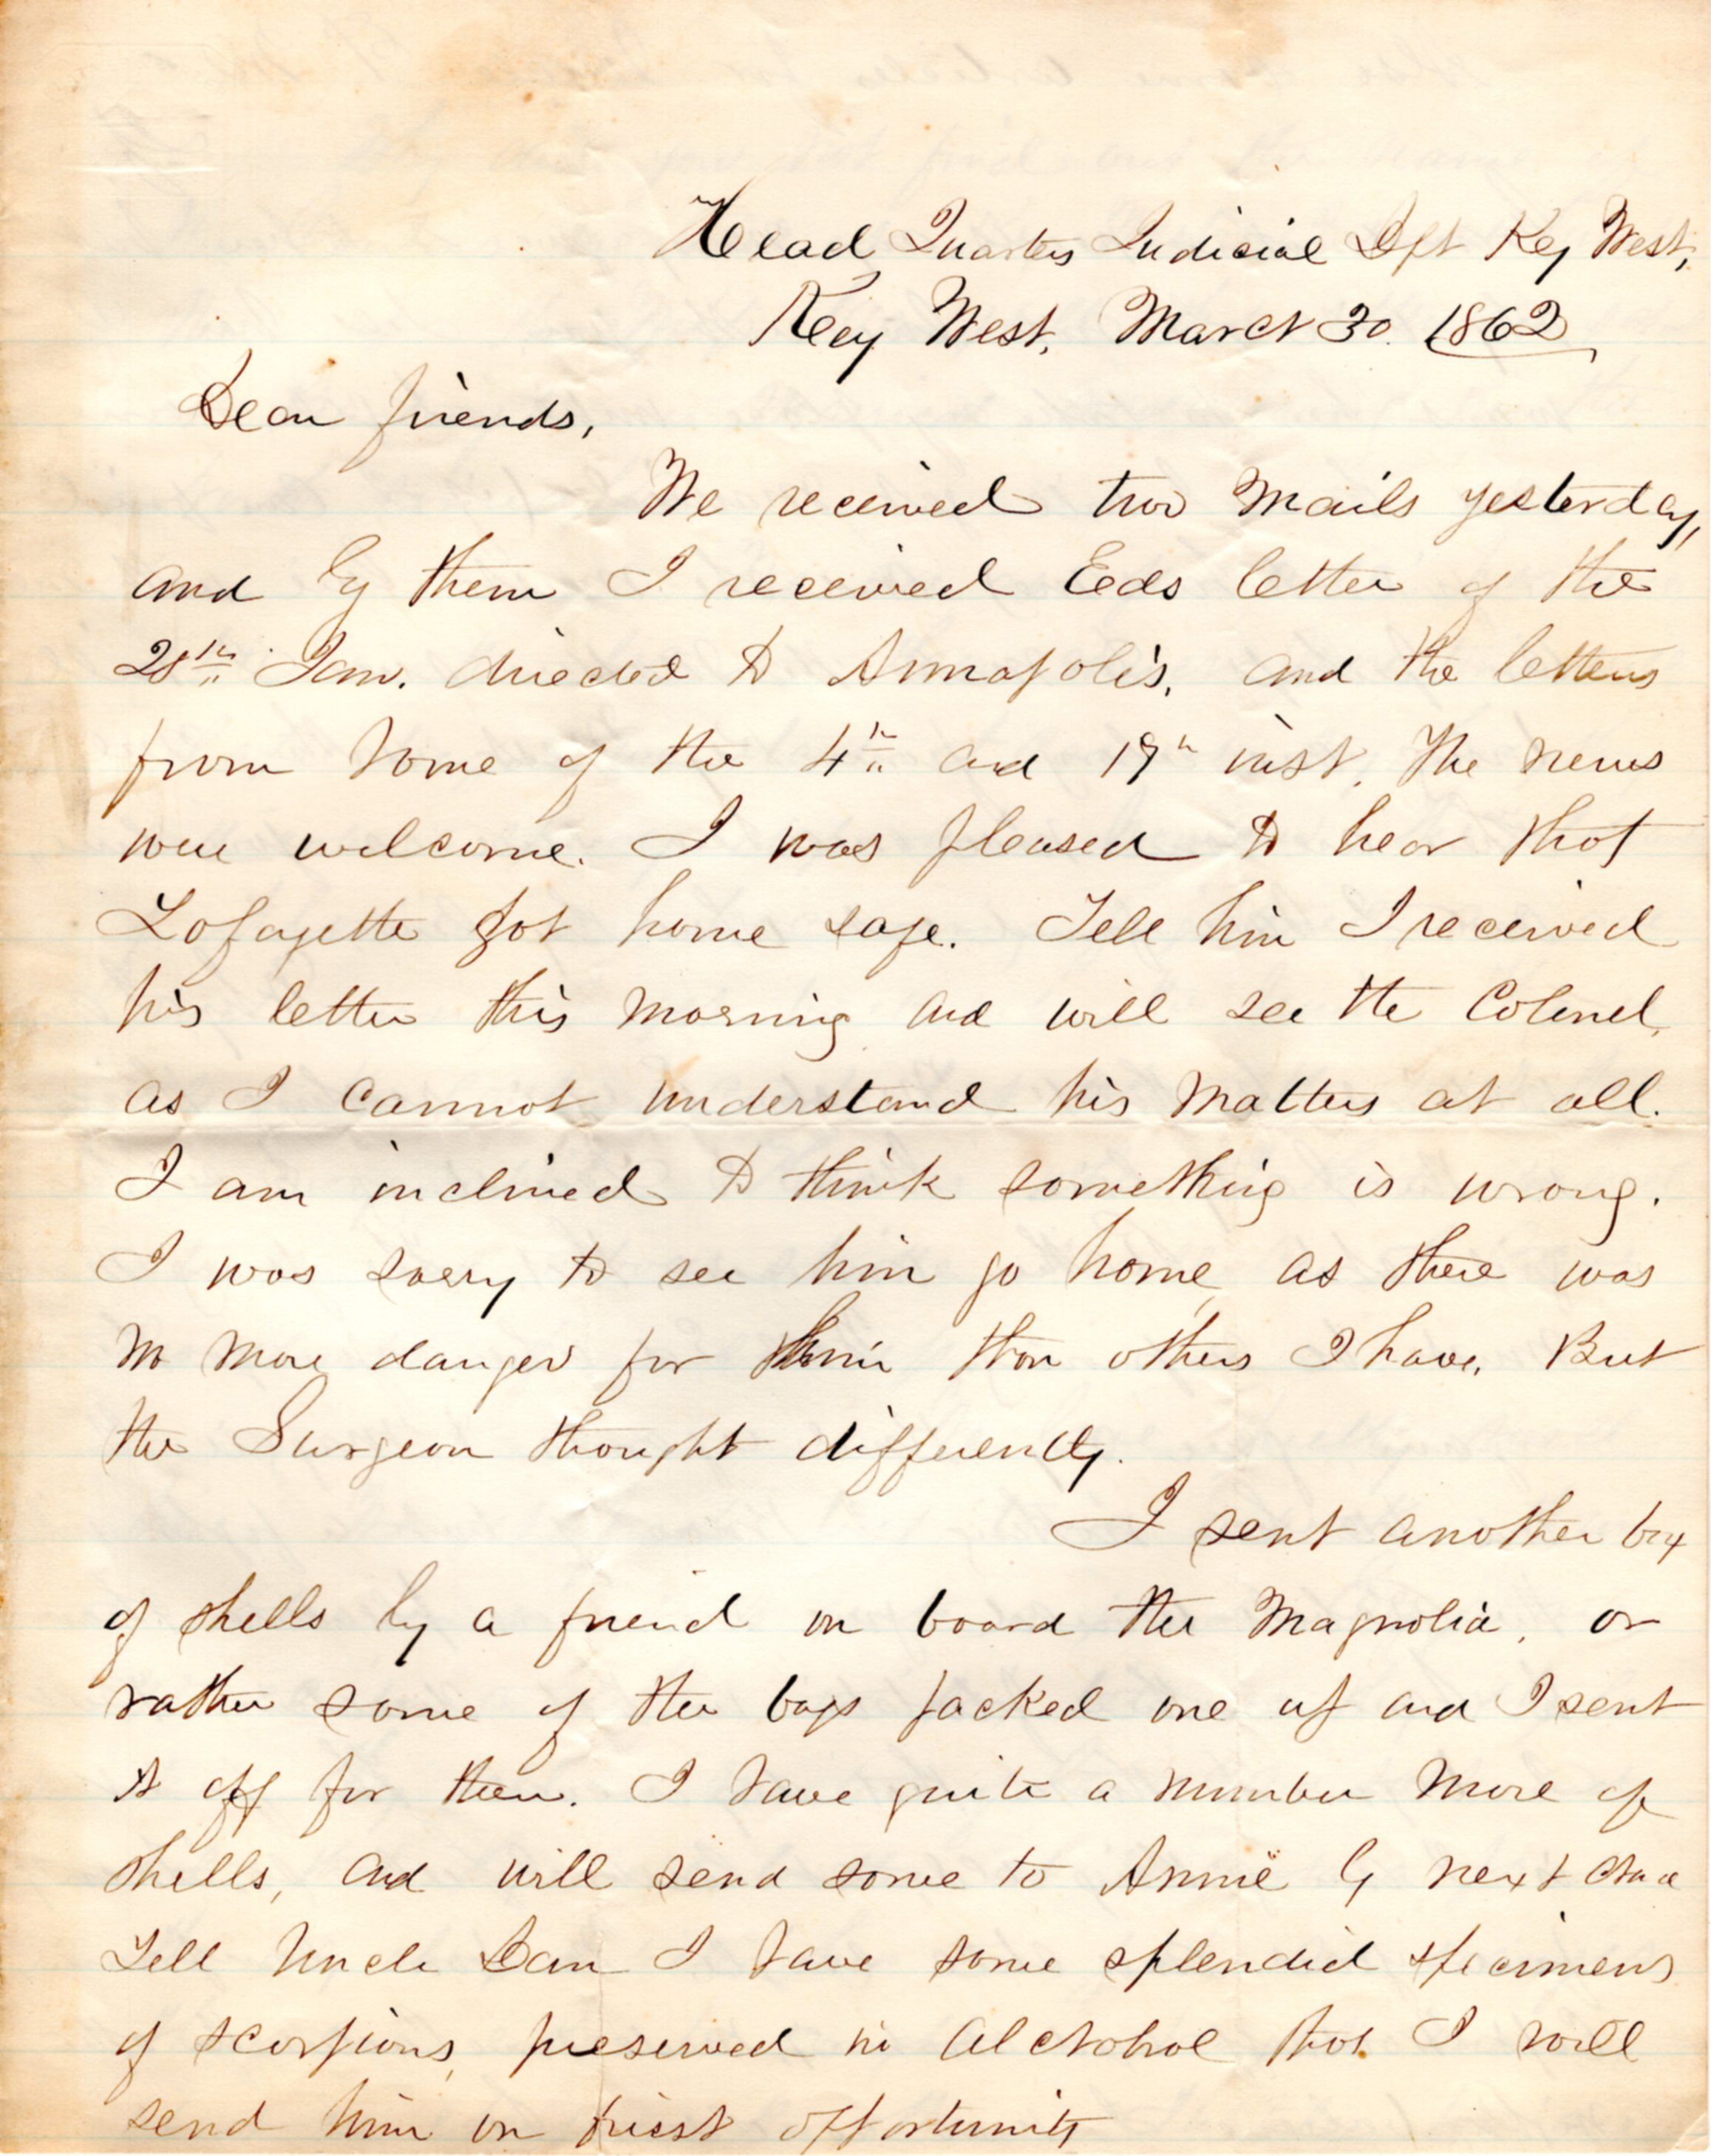 Head Quarters Judicial Dpt Key West,
Key West, March 30. 1862
Dear friends,
We received two mails yesterday,
and by them I received Eds letter of the
28th Jan. directed to Annapolis, and the letters
from home of the 4th and 19th inst. The news
were welcome. I was pleased to hear that
Lafayette got home safe. Tell him I received
his letter this morning and will see the Colonel,
as I cannot understand his matters at all.
I am inclined to think something is wrong.
I was sorry to see him go home, as there was
no more danger for him than others I have. But
the Surgeon thought differently.
I sent another box
of shells by a friend on board the Magnolia, or
rather some of the boys packed one up and I sent
it off for them. I have quite a number more of
shells, and will send some to Annie by next
Tell Uncle Dan I have some splendid specimens
of scorpions, preserved in Alchohol that I will
send him on first opportunity